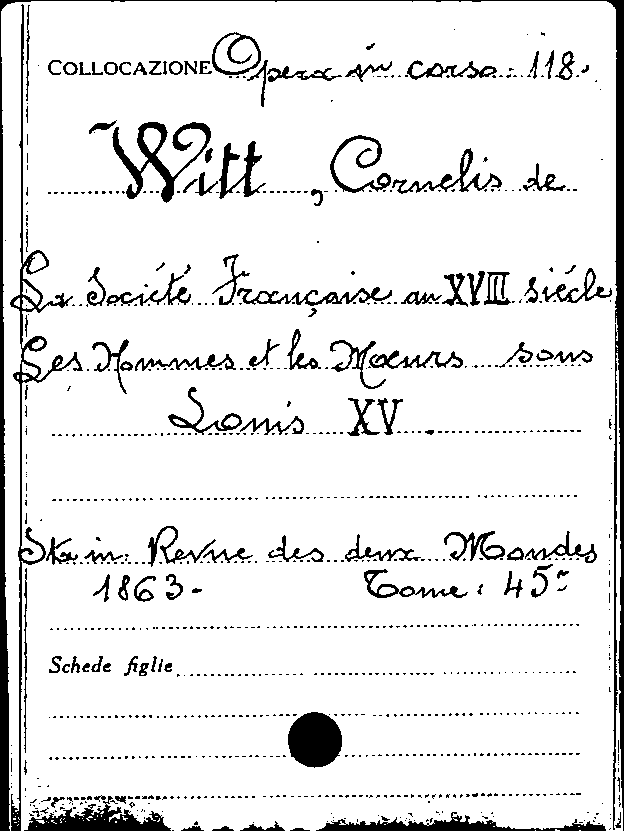 COLLOCAZIONE Opera in corso. 118.
Witt, Cornelis de
La Société Française au XVIII siécle
Les Hommes et les Mœurs sous
Louis XV.
Sta in: Revue des deux Mondes
1863. Tome: 45º
Schede figlie